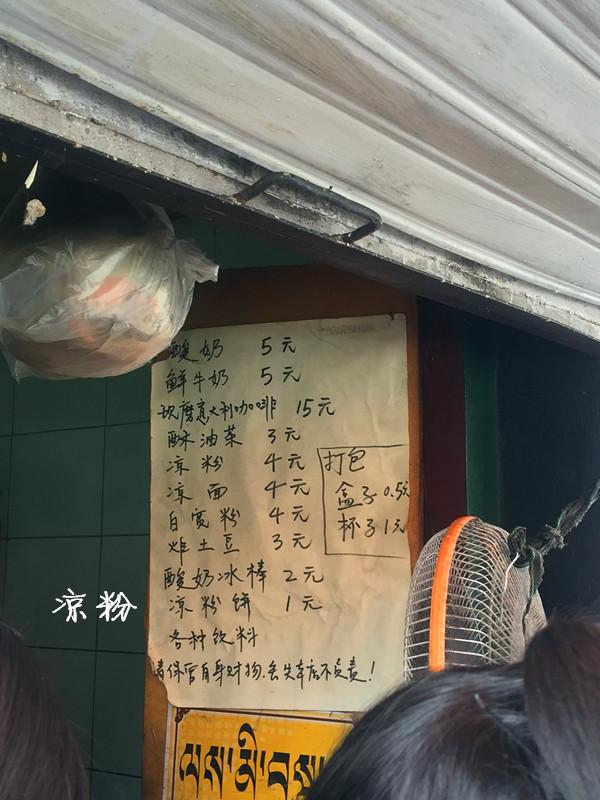 酸奶 5元
鲜牛奶 5元
现磨意大利咖啡 15元
酥油茶 3元
凉粉 4元
凉面 4元
白宽粉 4元
炸土豆 3元
酸奶冰棒 2元
凉粉饼 1元
各种饮料
请保管自身财物.丢失本店不负责!
打包
盒子0.5元
杯子1元
凉粉